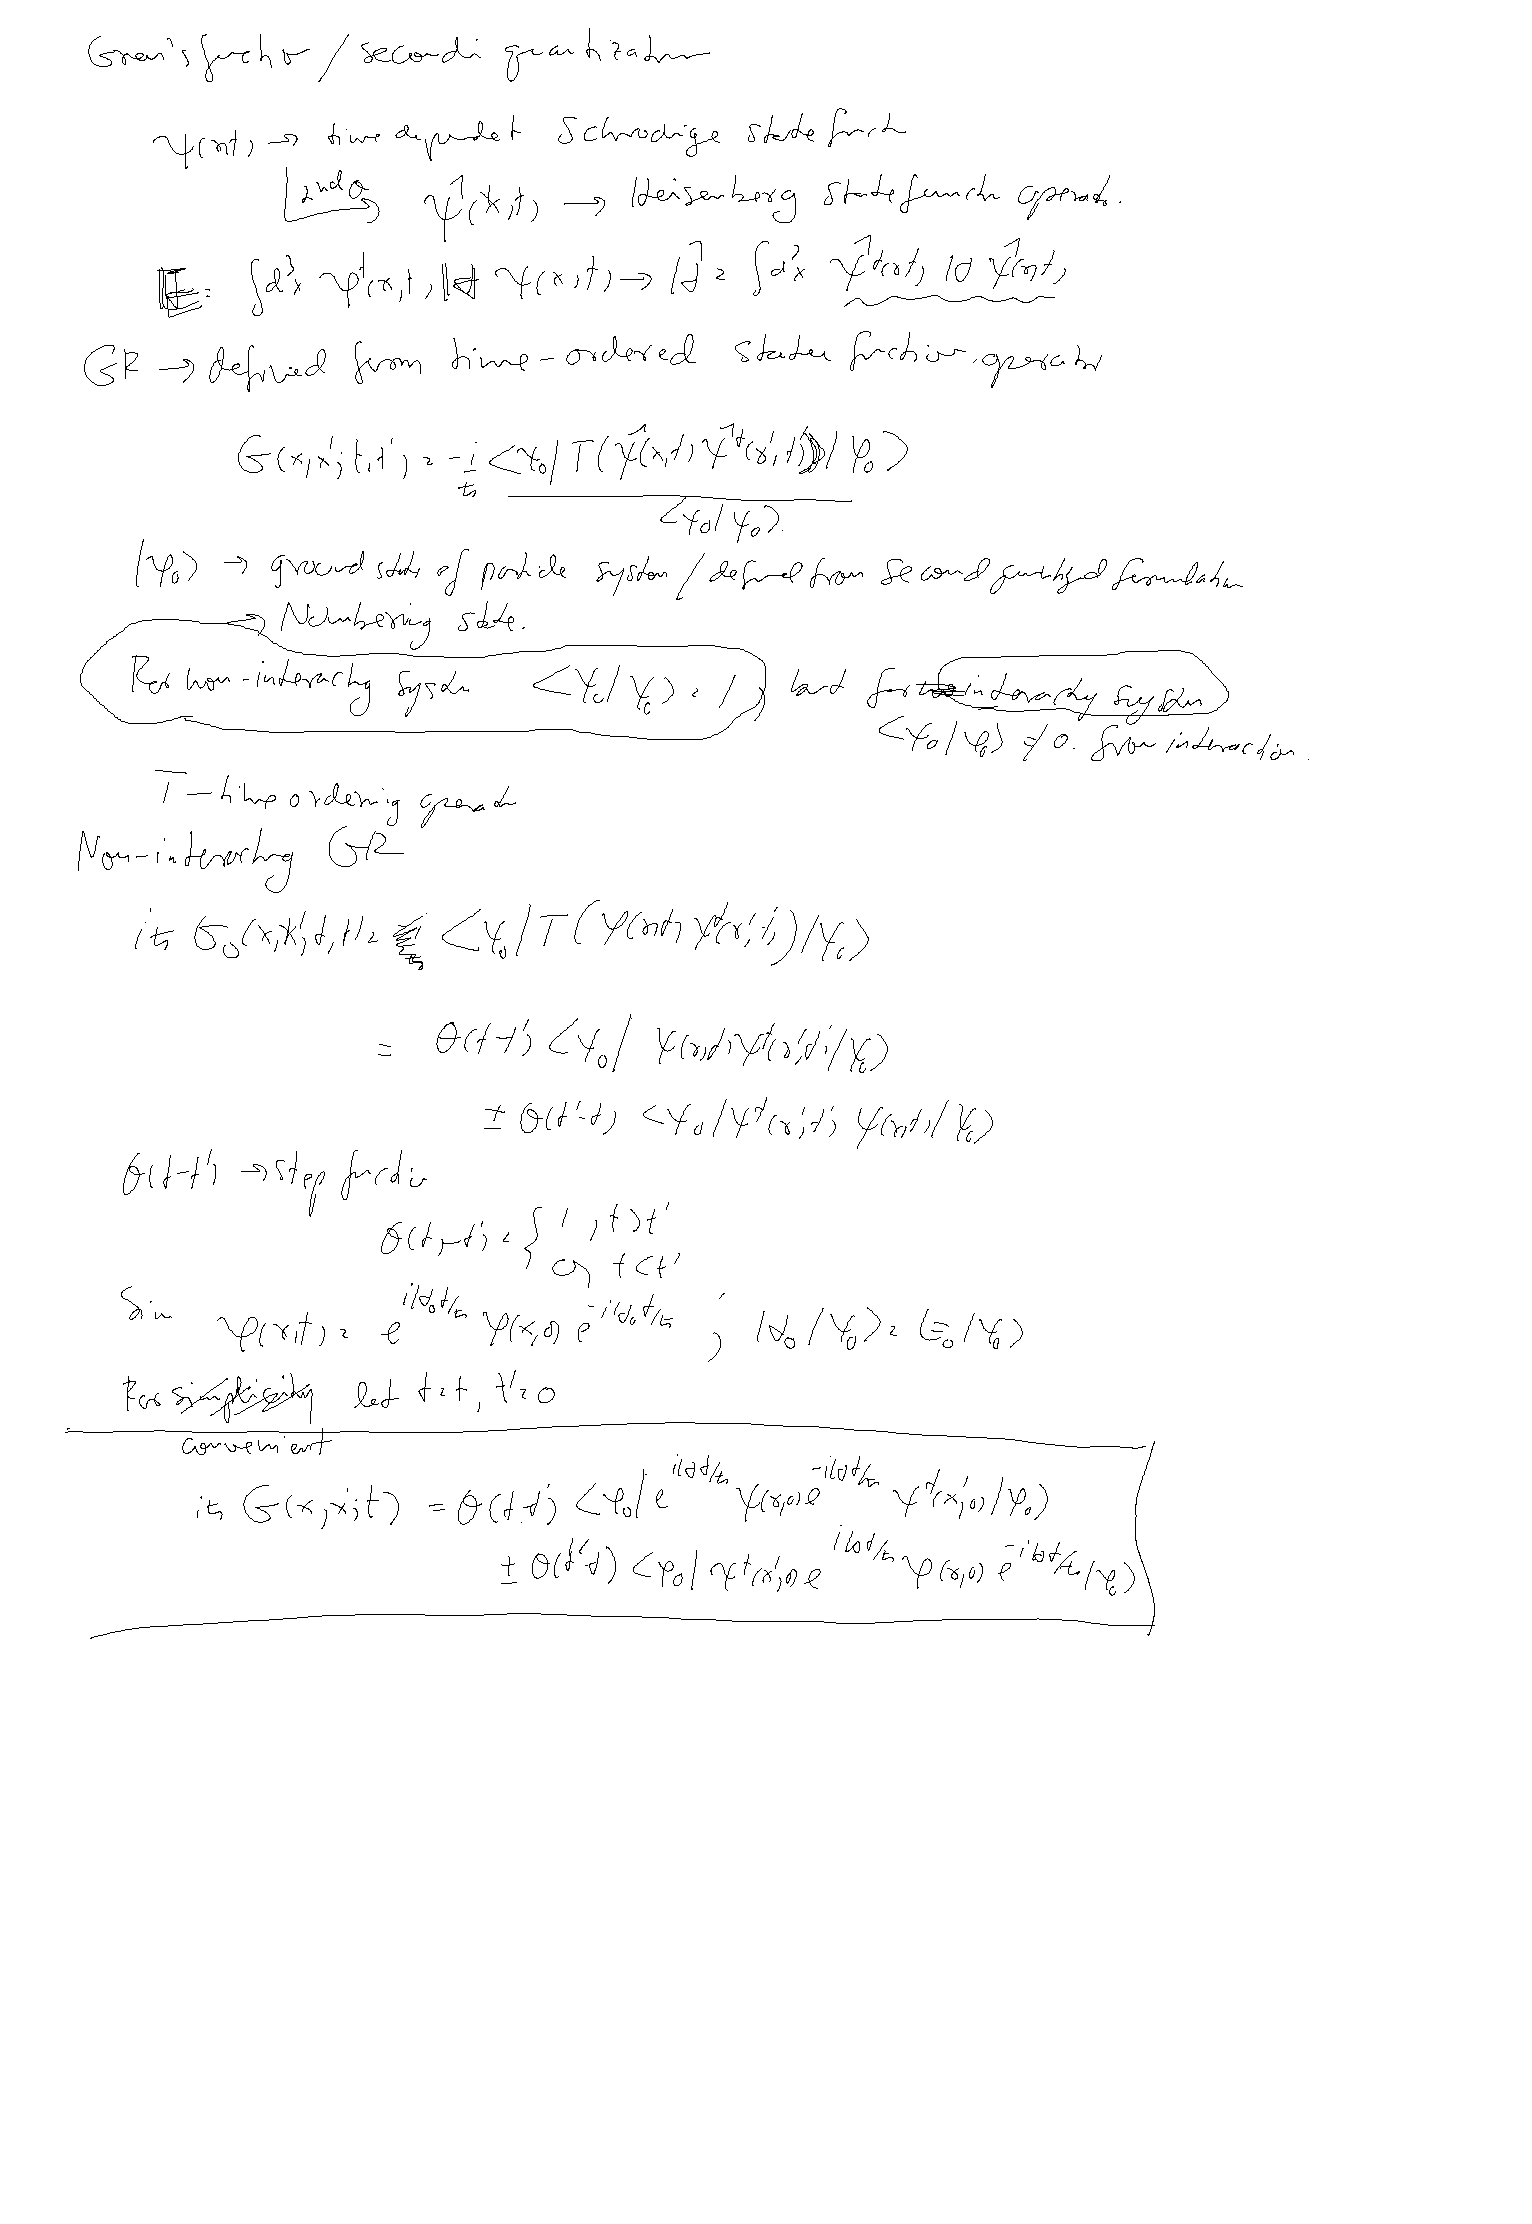 Green's functio / second quantization
ψ(x,t) → time dependet Schrodige state funct
2nd Q ψ̂(x,t) → Heisenberg state functi operato.
E = ∫d³x ψ†(x,t) H ψ(x,t) → Ĥ = ∫d³x ψ̂†(x,t) H ψ̂(x,t)
GR → defined from time-ordered state function operator
G(x,x';t,t') = -i/ħ <ψ₀|T(ψ̂(x,t) ψ̂†(x',t'))|ψ₀>
<ψ₀|ψ₀>.
|ψ₀> → ground state of particle system / defined from second quantized formulation
→ Numbering state.
For non-interacting system <ψ₀|ψ₀> = 1, but for interacting system
<ψ₀|ψ₀> ≠ 0. from interaction.
T - time ordering operato
Non-interacting GR
iħ G₀(x,x',t,t') = <ψ₀|T(ψ(x,t) ψ†(x',t'))|ψ₀>
= θ(t-t') <ψ₀| ψ(x,t) ψ†(x',t')|ψ₀>
± θ(t'-t) <ψ₀|ψ†(x',t') ψ(x,t)|ψ₀>
θ(t-t') → step functio
θ(t,-t') = { 1 , t>t'
0, t<t'
Sin ψ(x,t) = e^{iH₀t/ħ} ψ(x,0) e^{-iH₀t/ħ} ; H₀|ψ₀> = E₀|ψ₀>
For simplicity let t=t, t'=0
convenient
iħ G(x,x';t) = θ(t-t') <ψ₀| e^{iHt/ħ} ψ(x,0) e^{-iHt/ħ} ψ†(x',0)|ψ₀>
± θ(t'-t) <ψ₀| ψ†(x',0) e^{iHt/ħ} ψ(x,0) e^{-iHt/ħ}|ψ₀>